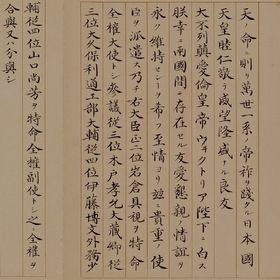 天ノ命ニ則リ萬世一系ノ帝祚ヲ踐タル日本國
天皇睦仁敬テ威望隆盛ナル良友
大不列顛愛倫皇帝ウヰクトリア陛下ニ白ス
朕幸ニ兩國間ニ存在セル友愛懇親ノ情誼ヲ
永ク維持センヿヲ希フ至情ヨリ茲ニ貴重ノ使
臣ヲ派遣ス乃チ右大臣正二位岩倉具視ヲ特命
全權大使トシ參議從三位木戸孝允大藏卿從
三位大久保利通工部大輔從四位伊藤博文外務少
輔從四位山口尚芳ヲ特命全權副使トシ之ニ全權ヲ
合與又ハ分與シ